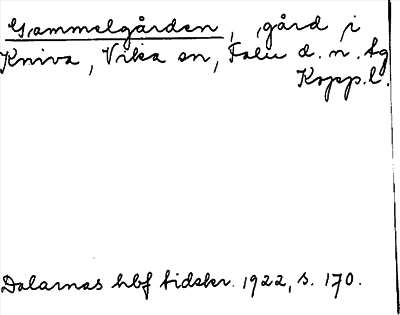 Gammelgården, gård i
Kniva, Vika sn, Falu d. n. tg
Kopp. l.
Dalarnas hbf tidskr. 1922, s. 170.